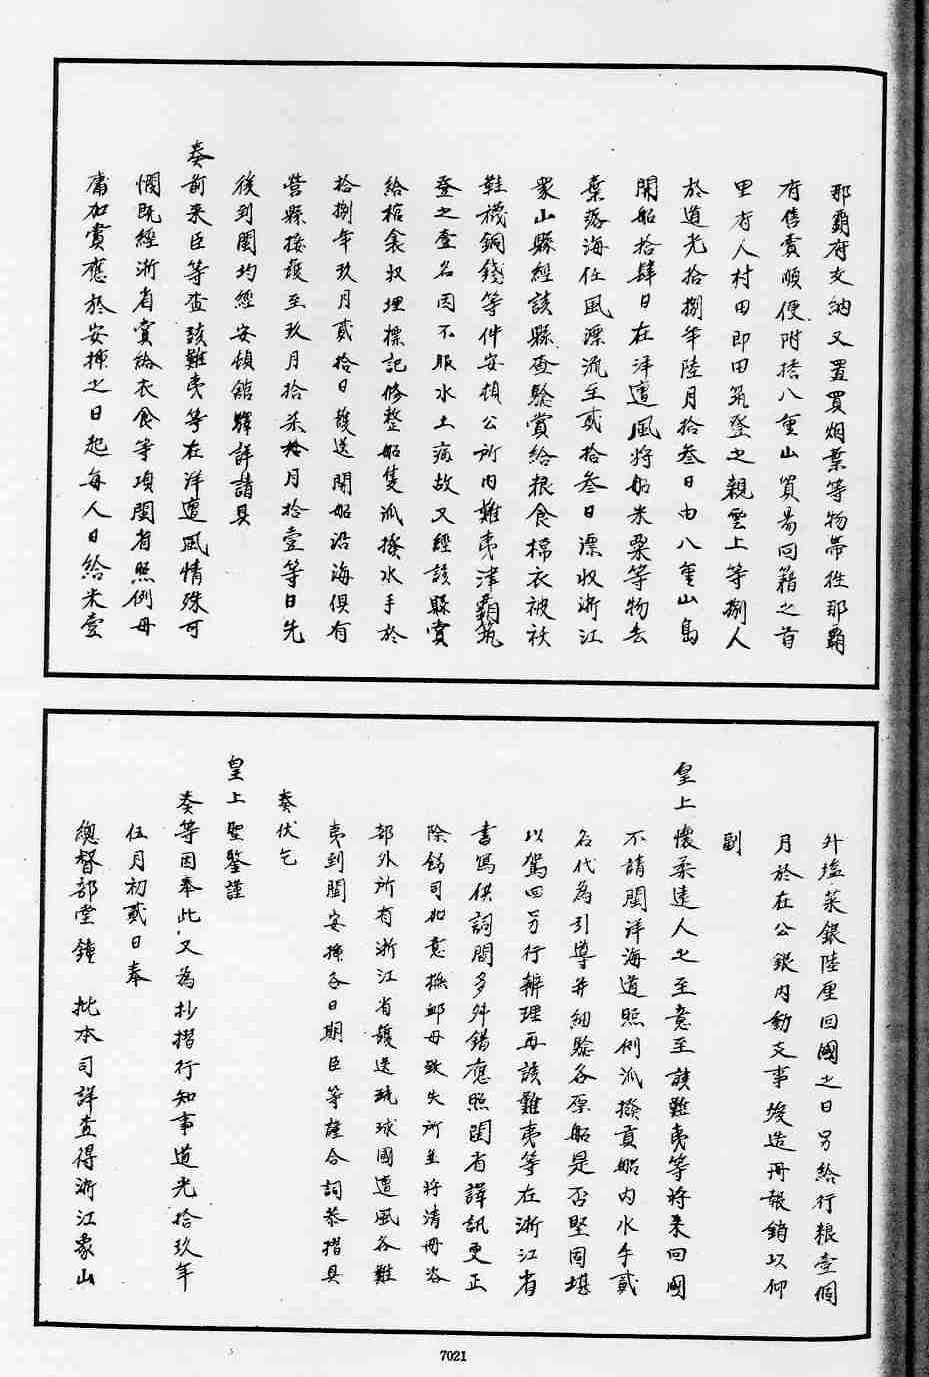 那霸府交納又置買烟葉等物帶往那霸
府售賣順便附搭八重山貿易回籍之首
里府人村田即田筑登之親雲上等捌人
於道光拾捌年陸月拾叁日由八重山島
開船拾肆日在洋遭風將船米粟等物丟
棄落海任風漂流至貳拾叁日漂收浙江
象山縣經該縣查驗賞給粮食棉衣被袄
鞋襪銅錢等件安頓公所内難夷津霸筑
登之壹名因不服水土病故又經該縣賞
給棺衾收埋標記修整船隻派撥水手於
拾捌年玖月貳拾日護送開船沿海俱有
營縣接護至玖月拾柒拾月拾壹等日先
後到閩均經安頓館驛詳請具
奏前来臣等查該難夷等在洋遭風情殊可
憫既經浙省賞給衣食等項閩省照例毋
庸加賞應於安揷之日起每人日給米壹
升塩菜銀陸厘回國之日另給行粮壹個
月於在公銀内動支事竣造册報銷以仰
副
皇上懷柔逺人之至意至該難夷等將来回國
不請閩洋海道照例派撥貢船内水手貳
名代為引導并細驗各原船是否堅固堪
以駕回另行辦理再該難夷等在浙江省
書寫供詞間多舛錯應照閩省譯訊更正
除飭司加意撫卹毋致失所並將清册咨
部外所有浙江省護送琉球國遭風各難
夷到閩安揷各日期臣等謹合詞恭摺具
奏伏乞
皇上聖鑒謹
奏等因奉此又為抄摺行知事道光拾玖年
伍月初貳日奉
總督部堂鐘 批本司詳查得浙江象山
7021